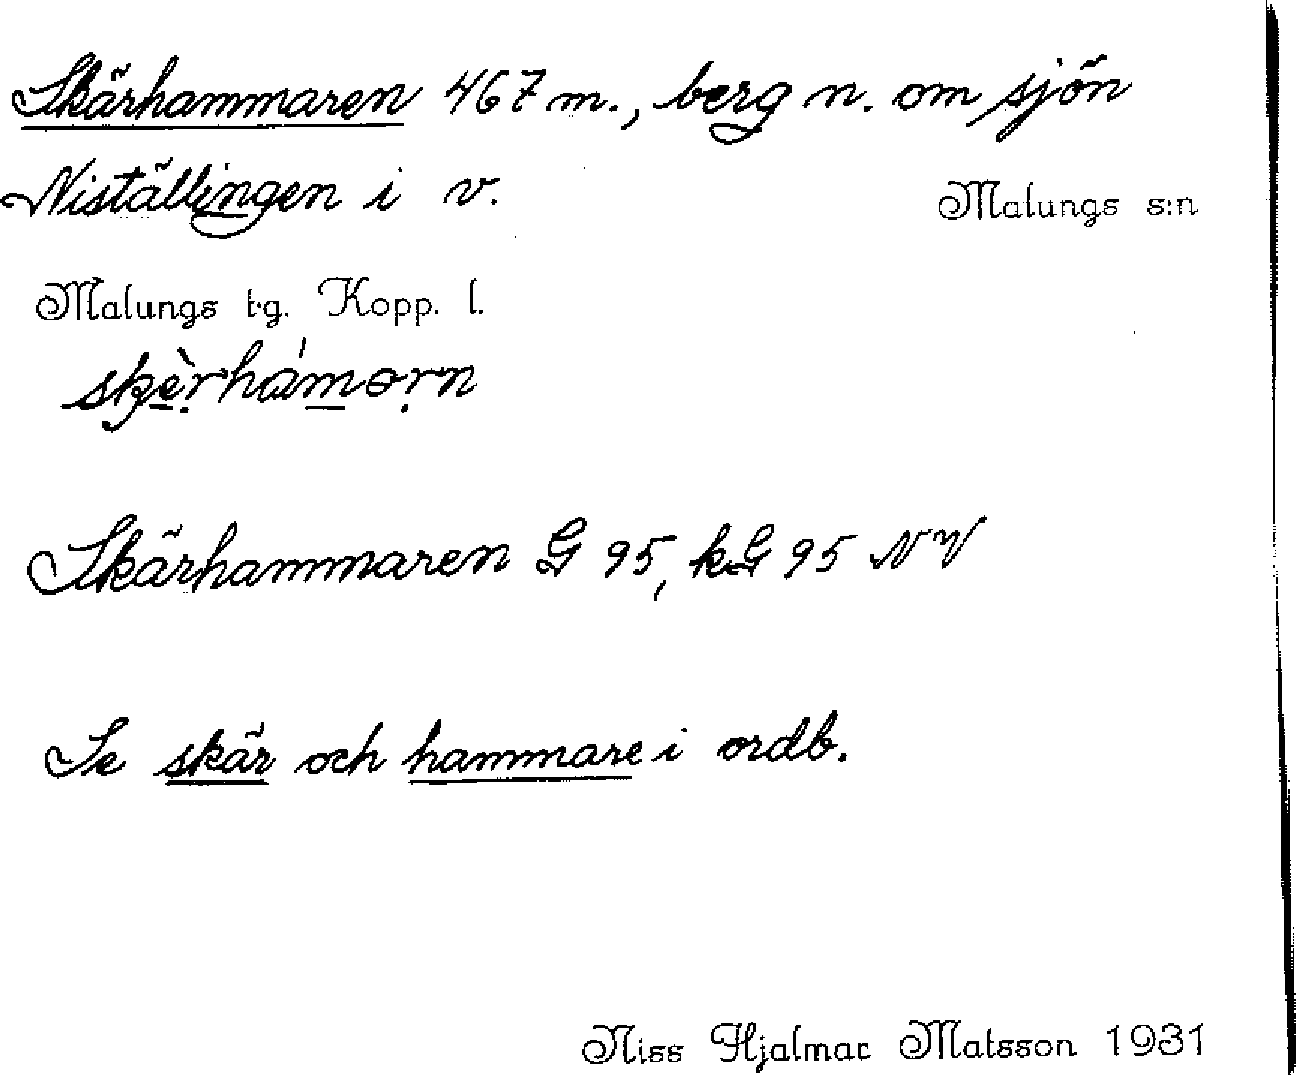 Skärhammaren 467 m., berg n. om sjön
Niställingen i v. Malungs s:n
Malungs t.g. Kopp. l.
skèrhámərn
Skärhammaren G 95, kG 95 NV
Se skär och hammare i ordb.
Niss Hjalmar Matsson 1931